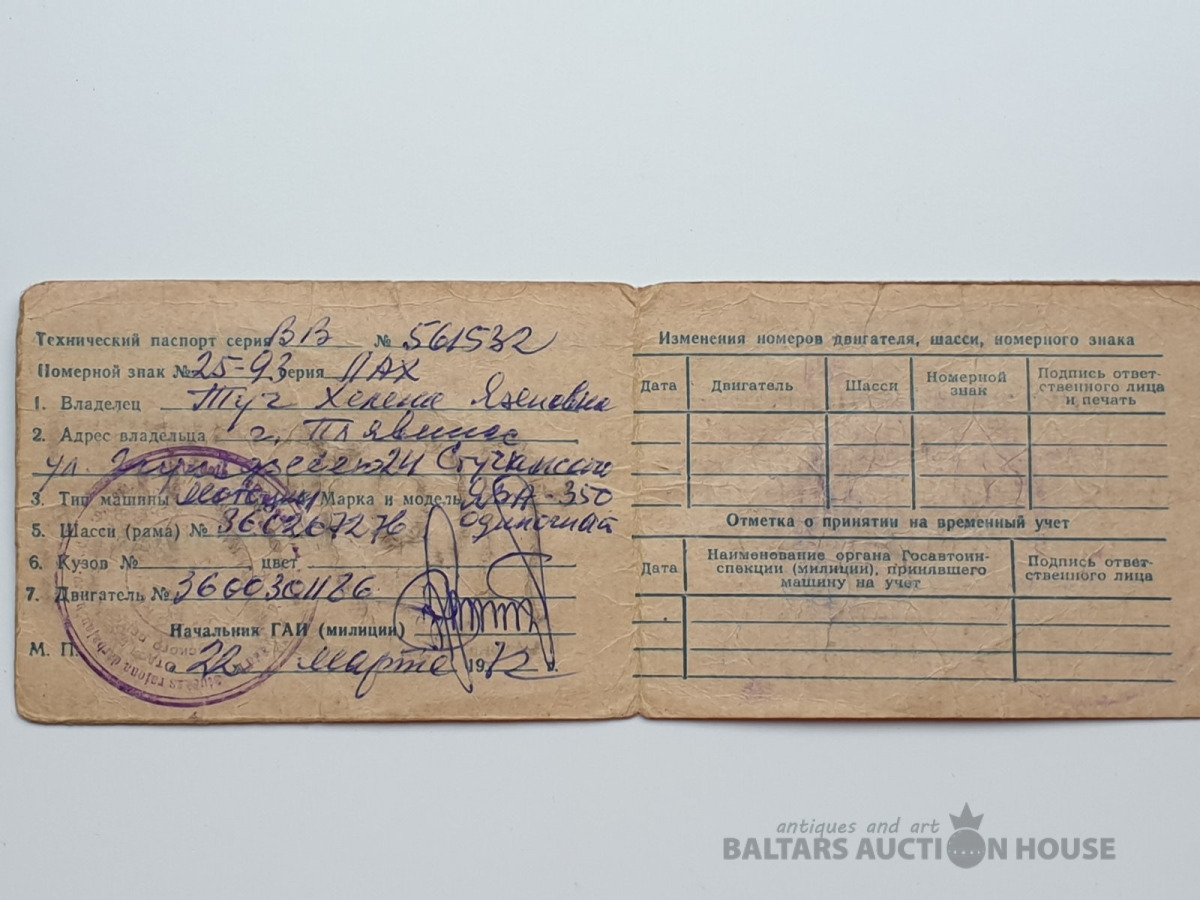 Технический паспорт серия ВВ № 561532
Номерной знак № 25-93 серия ЛАХ
1. Владелец Туч Хелена Язеповна
2. Адрес владельца г. Плявиняс
ул. 24 Стучкинский
3. Тип машины мотоцикл Марка и модель ЯВА-350
5. Шасси (рама) № 360267276 одиночный
6. Кузов № цвет
7. Двигатель № 3600301186
Начальник ГАИ (милиции)
М. П. 22 марта 1972 г.
Изменения номеров двигателя, шасси, номерного знака
Дата Двигатель Шасси Номерной знак Подпись ответственного лица и печать
Отметка о принятии на временный учет
Дата Наименование органа Госавтоинспекции (милиции), принявшего машину на учет Подпись ответственного лица
antiques and art
BALTARS AUCTION HOUSE